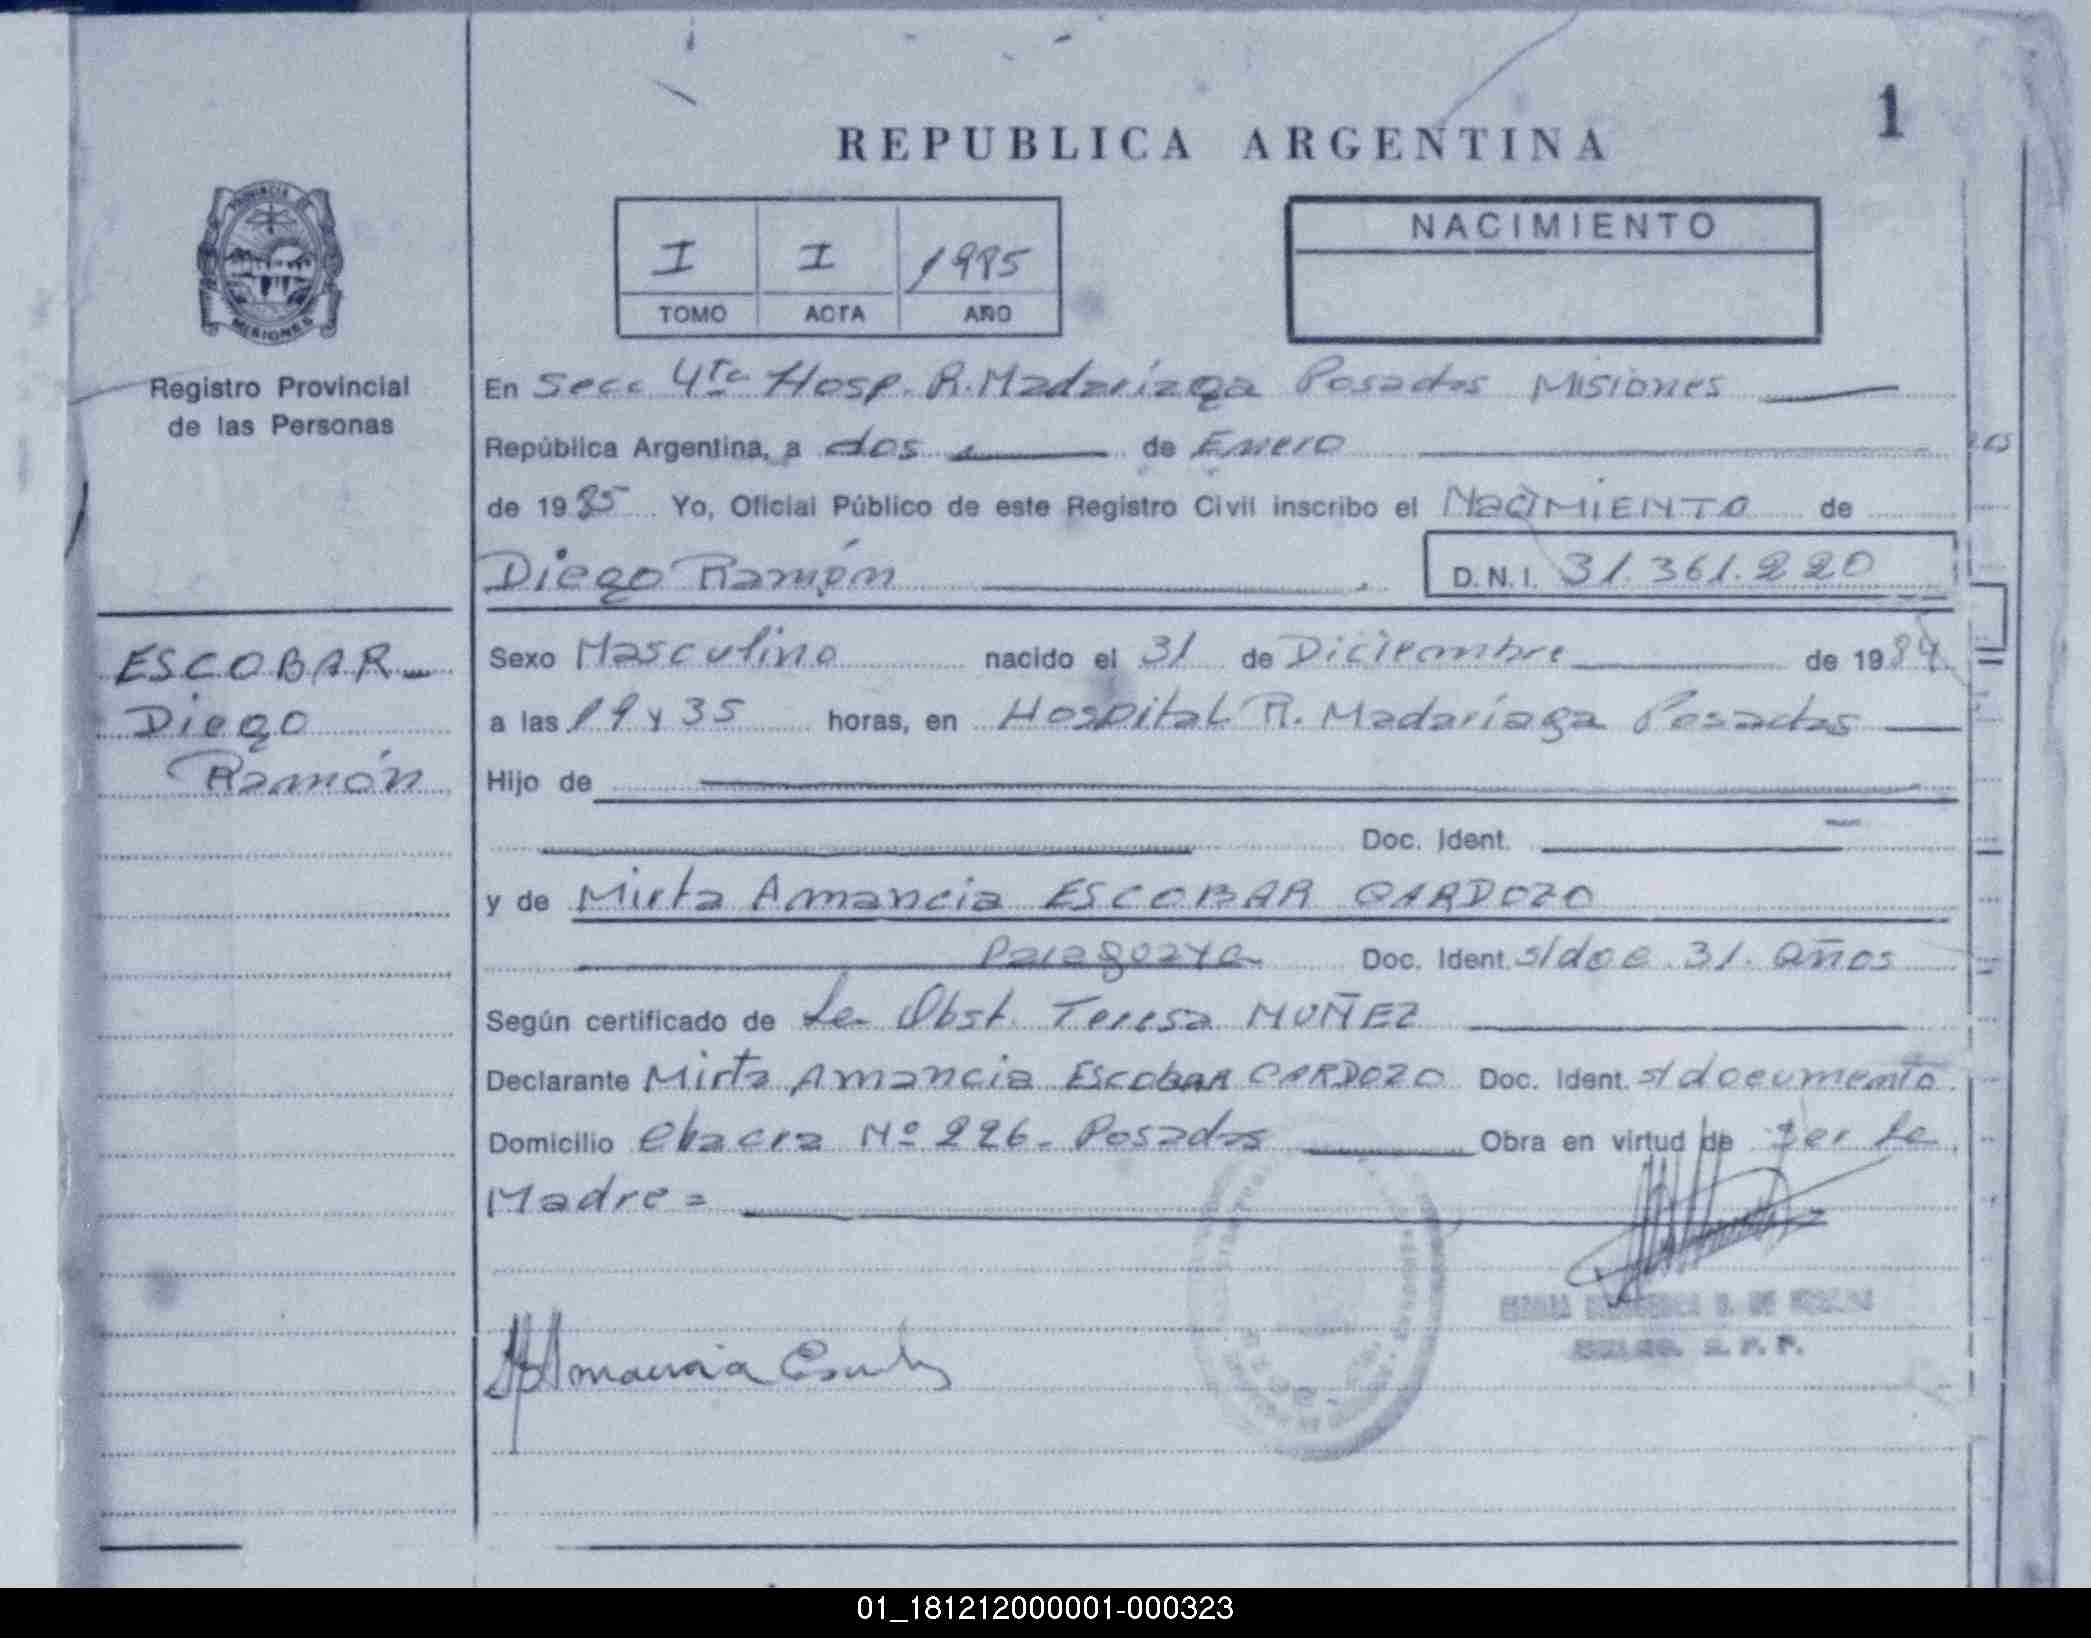 1
REPUBLICA ARGENTINA
PROVINCIA DE
MISIONES
Registro Provincial
de las Personas
I I 1985
TOMO ACTA AÑO
NACIMIENTO
En Secc 4ta Hosp. R. Madariaga Posadas Misiones
República Argentina, a dos de Enero
de 1985 Yo, Oficial Público de este Registro Civil inscribo el NaCIMIENTO de
Diego Ramón D.N.I. 31.361.220
ESCOBAR
Diego
Ramón
Sexo Masculino nacido el 31 de Diciembre de 1984
a las 19 y 35 horas, en Hospital R. Madariaga Posadas
Hijo de
Doc. Ident.
y de Mirta Amancia ESCOBAR CARDOZO
Paraguaya Doc. Ident. s/doc 31. años
Según certificado de La Obst. Teresa MUÑEZ
Declarante Mirta Amancia Escobar CARDOZO Doc. Ident. s/documento
Domicilio Chacra Nº 226. Posadas Obra en virtud de ser la
Madre =
Amancia
01_181212000001-000323